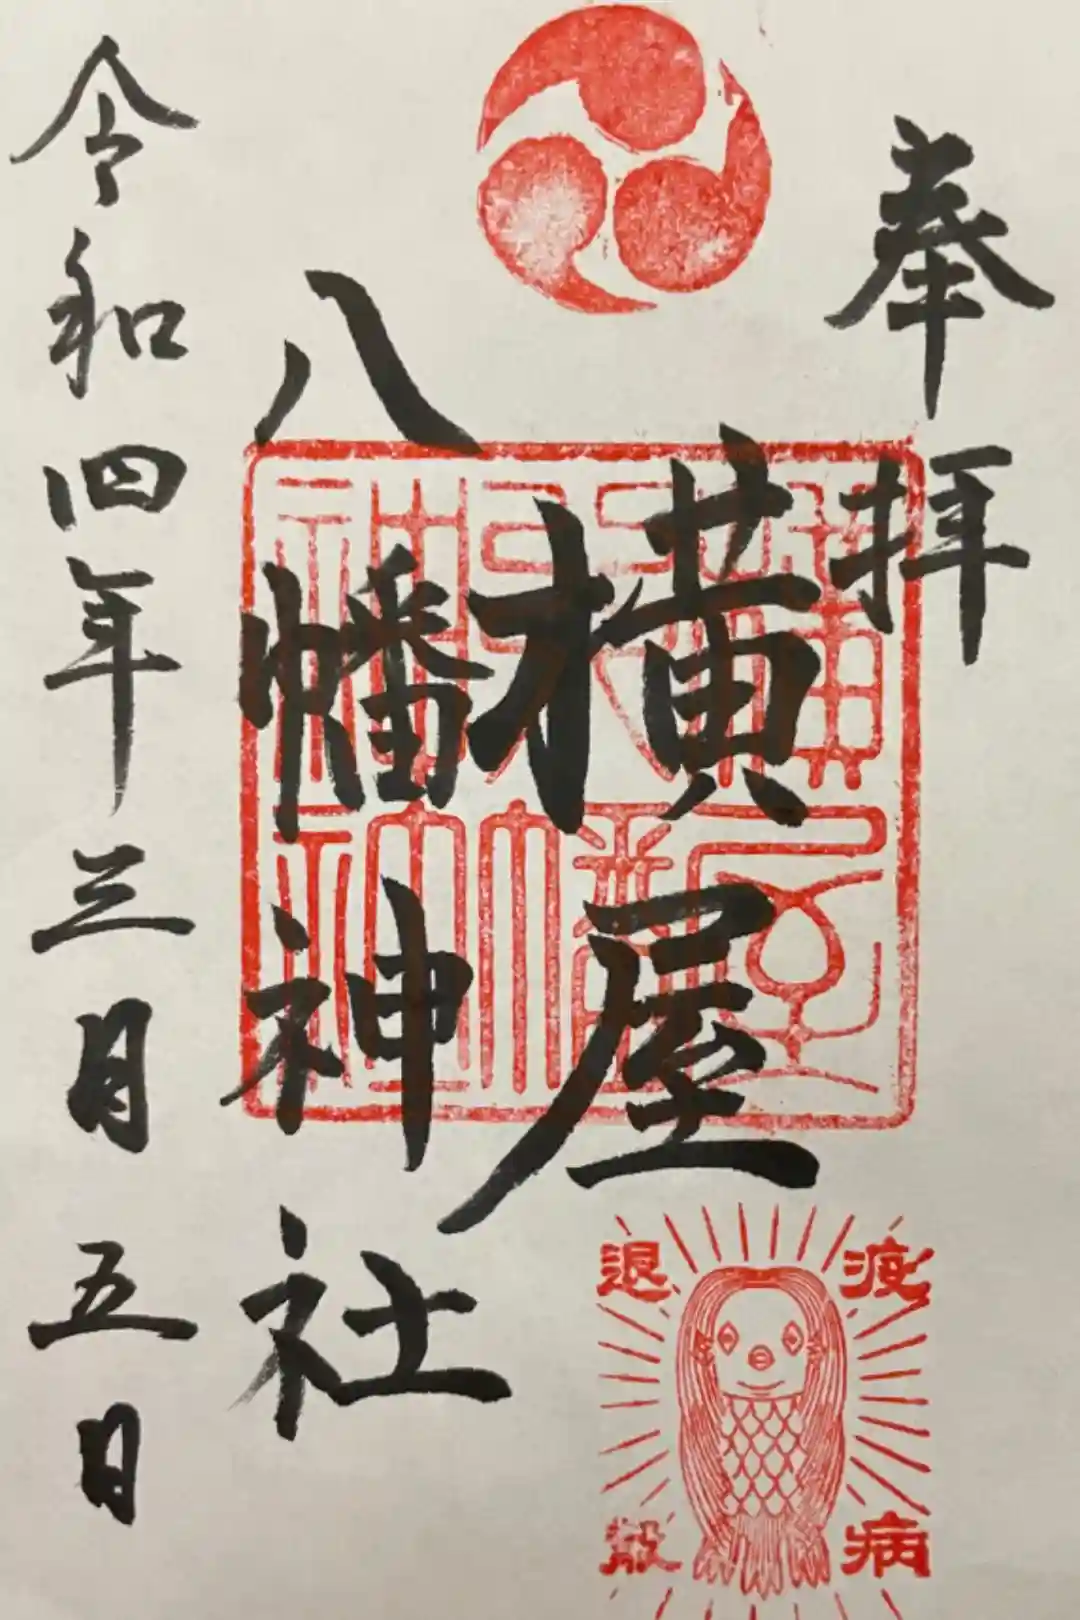 奉拝
横屋
八幡神社
令和四年三月五日
疫病
退散